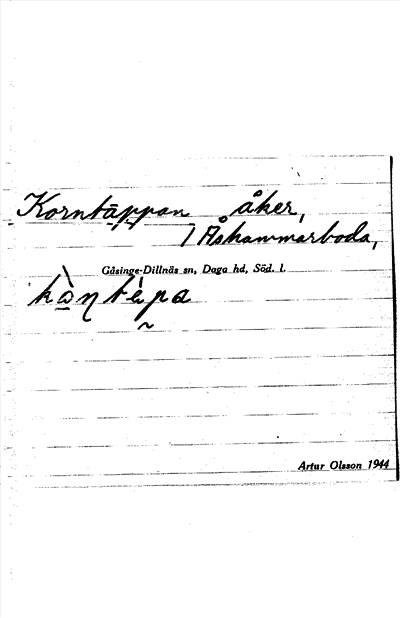 Korntäppan åker,
1 Åshammarboda,
Gåsinge-Dillnäs sn, Daga hd, Söd. l.
Artur Olsson 1944